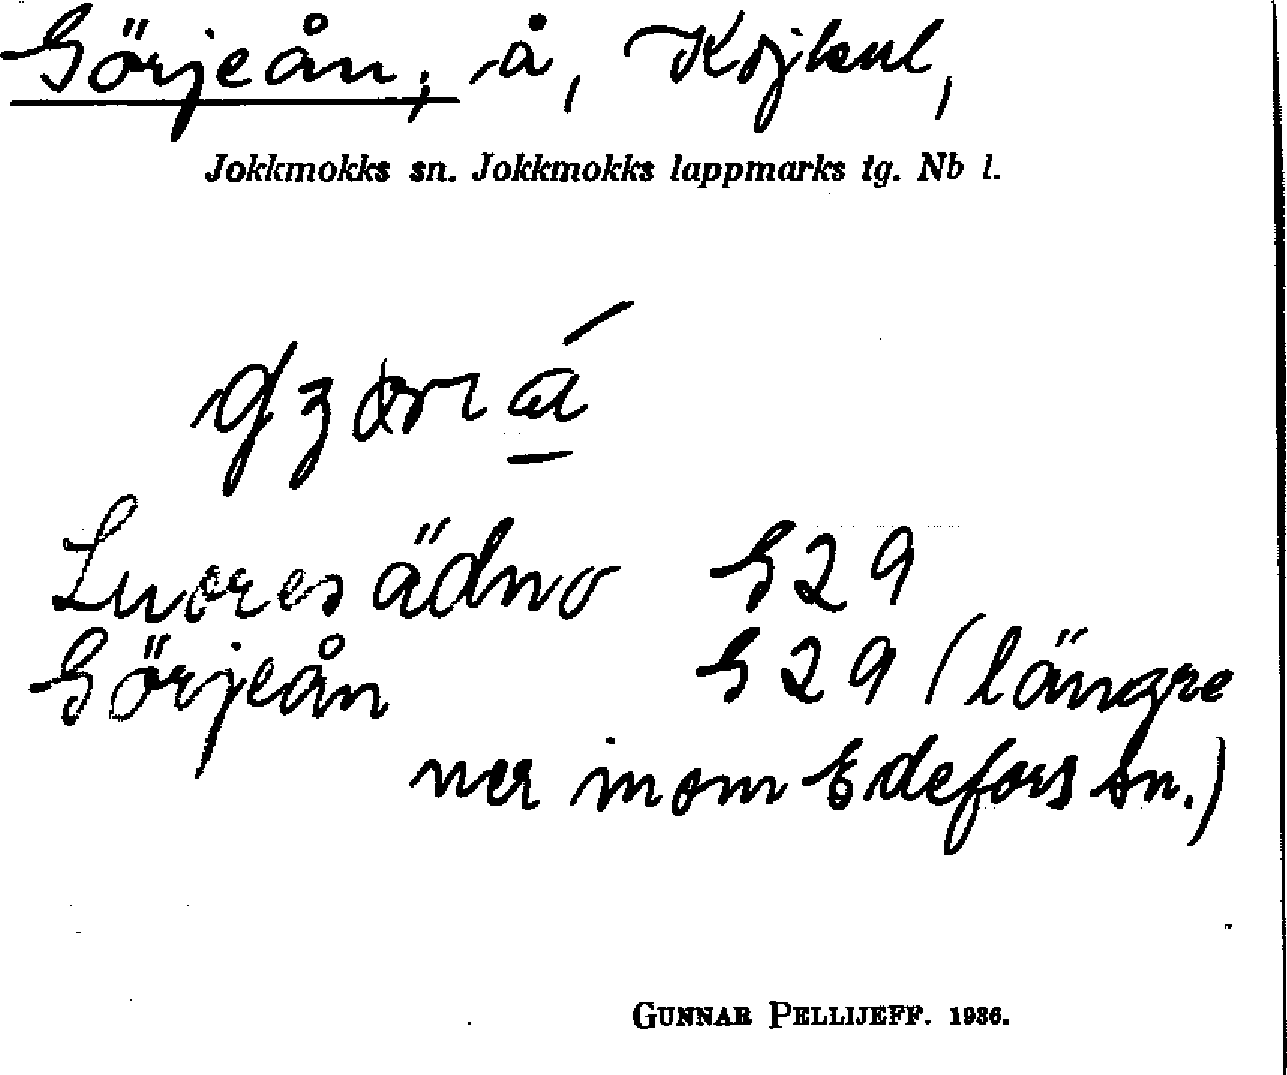 Görjeån, å, Kojkul,
Jokkmokks sn. Jokkmokks lappmarks tg. Nb l.
Luoresädno G29
Görjeån G29 (längre
ner inom Edefors sn.)
GUNNAR PELLIJEFF. 1936.